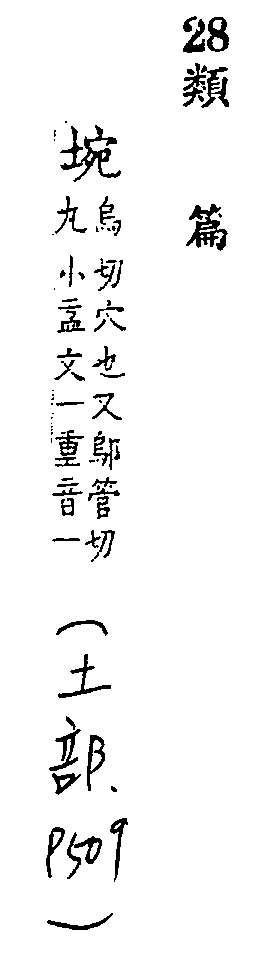 28類篇
埦
烏切穴也又鄔管切
丸小盂文一重音一
(土部.P509)